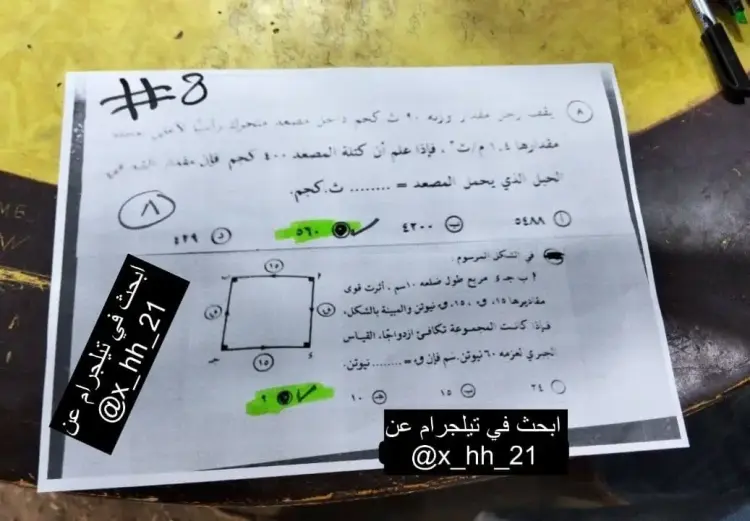 ##8
٨ يقف رجل مقدار وزنه ٩٠ ث كجم داخل مصعد متحرك رأسيًا لأعلى
مقدارها ١,٤ م/ث٢، فإذا علم أن كتلة المصعد ٤٠٠ كجم فإن مقدار الشد في
الحبل الذي يحمل المصعد = ........ ث.كجم.
٨
أ ٥٤٨٨ ب ٤٢٠٠ ٥٦٠ د ٤٢٩
في الشكل المرسوم :
أ ب جـ د مربع طول ضلعه ١٠سم ، أثرت قوى
مقاديرها ١٥، ق، ١٥، ق نيوتن والمبينة بالشكل،
فإذا كانت المجموعة تكافئ ازدواجًا، القياس
الجبري لعزمه ٦٠ نيوتن.سم فإن ق = ........ نيوتن.
٢٤ ب ١٥ جـ ١٠ ٩
١٥
ب أ
ق ق
جـ د
١٥
ابحث في تيلجرام عن
@x_hh_21
ابحث في تيلجرام عن
@x_hh_21